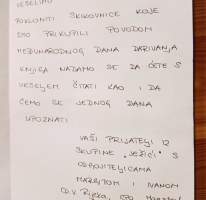 VESELIMO
POKLONITI SLIKOVNICE KOJE
SMO PRIKUPILI POVODOM
MEĐUNARODNOG DANA DARIVANJA
KNJIGA NADAMO SE DA ĆETE S
VESELJEM ČITATI KAO I DA
ĆEMO SE JEDNOG DANA
UPOZNATI.
VAŠI PRIJATELJI IZ
SKUPINE „JEŽIĆI“ S
ODGOJITELJICAMA
MARGITOM I IVANOM
D.V. Rijeka, CPO